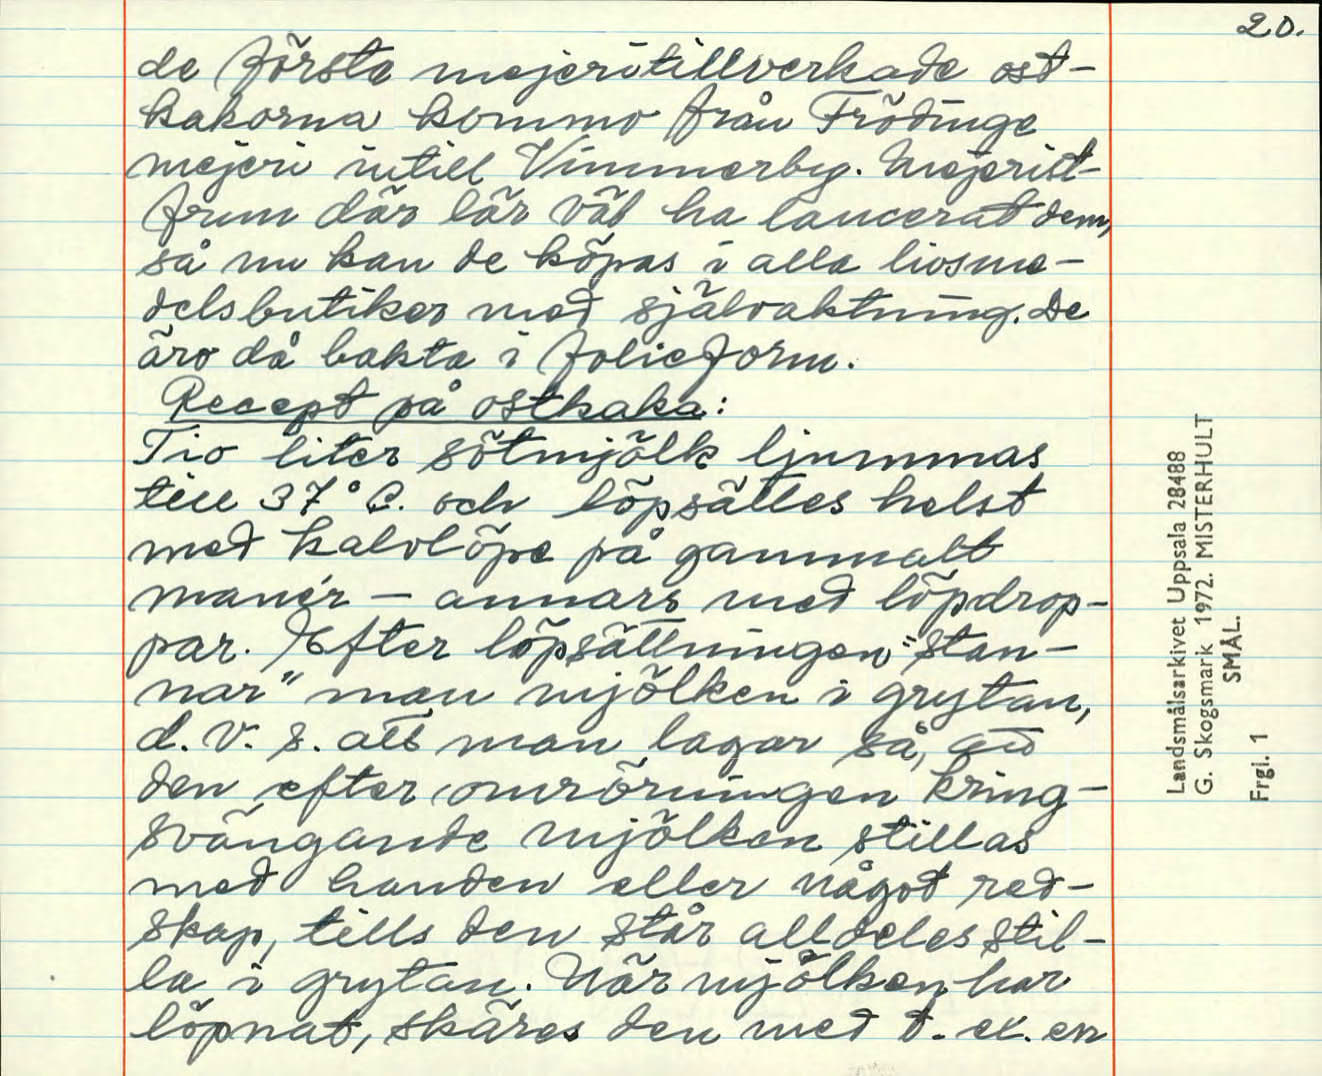 20.
de första mejeritillverkade ost-
kakorna kommo från Frödinge
mejeri intill Vimmerby. Mejerist-
frun där lär väl ha lancerat dem,
så nu kan de köpas i alla livsme-
delsbutiker med självaktning. De
äro då bakta i folieform.
Recept på ostkaka:
Tio liter sötmjölk ljummas
till 37° C. och löpsättes helst
med kalvlöpe på gammalt
manér – annars med löpdrop-
par. Efter löpsättningen "stan-
nar" man mjölken i grytan,
d.v.s. att man lagar så, att
den efter omröringen kring-
svängande mjölken stillas
med handen eller något red-
skap, tills den står alldeles stil-
la i grytan. När mjölken har
löpnat, skäres den med t. ex. en
Landsmålsarkivet Uppsala 28488
G. Skogsmark 1972. MISTERHULT
SMÅL.
Frgl. 1